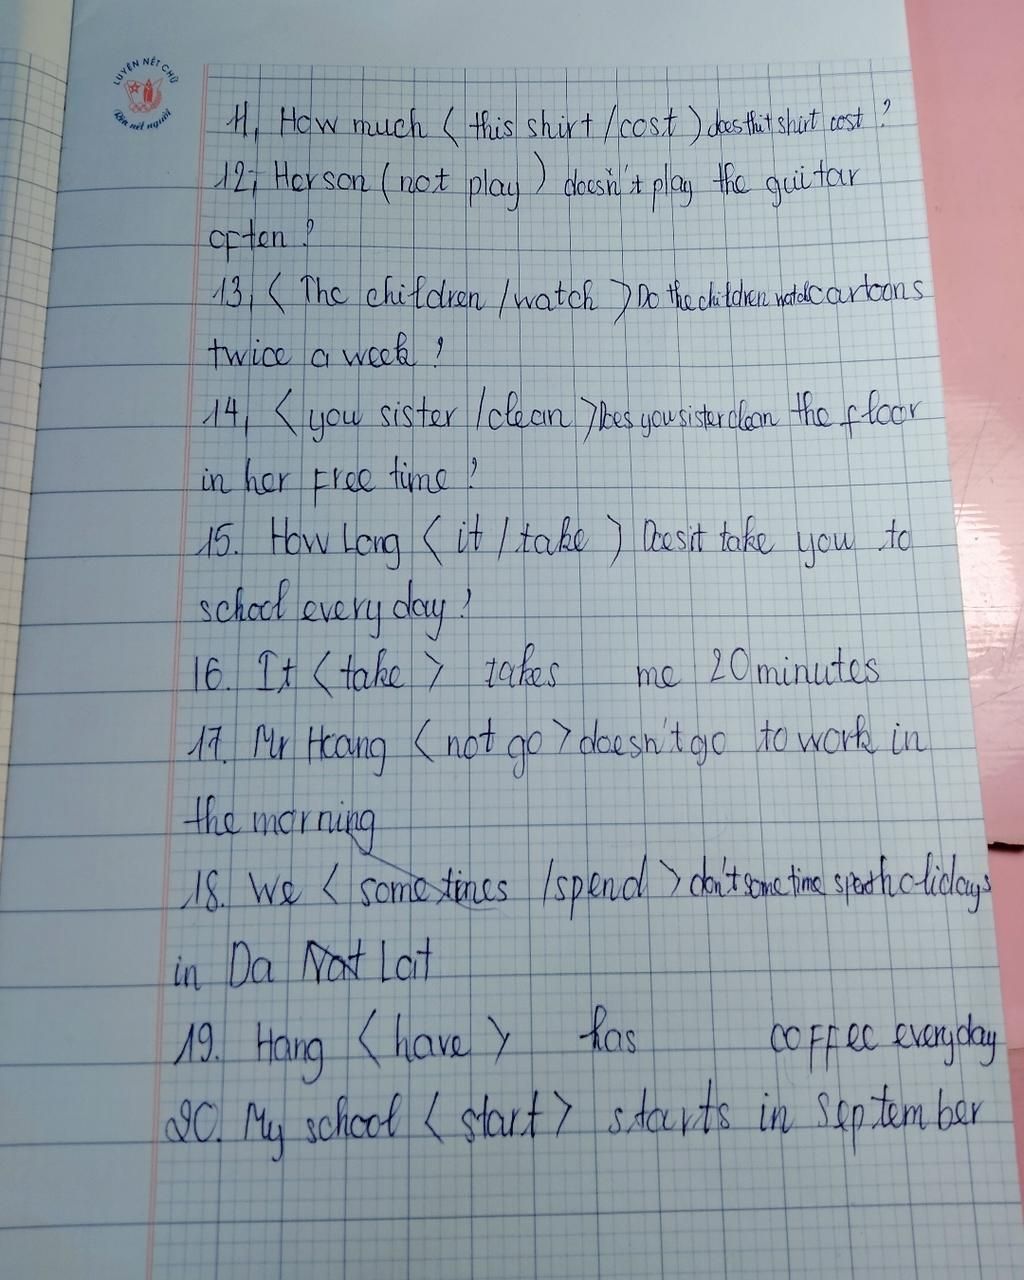 LUYỆN NÉT CHỮ
Rèn nết người
11, How much ( this shirt / cost ) does this shirt cost ?
12, Her son ( not play ) doesn't play the guitar
often ?
13, ( The children / watch ) Do the children watch cartoons
twice a week ?
14, ( you sister / clean ) Does you sister clean the floor
in her free time ?
15. How long ( it / take ) Does it take you to
school every day ?
16. It ( take ) takes me 20 minutes
17. Mr Hoang ( not go ) doesn't go to work in
the morning
18. We ( sometimes / spend ) don't some time spend holidays
in Da Lat
19. Hang ( have ) has coffee everyday
20. My school ( start ) starts in September